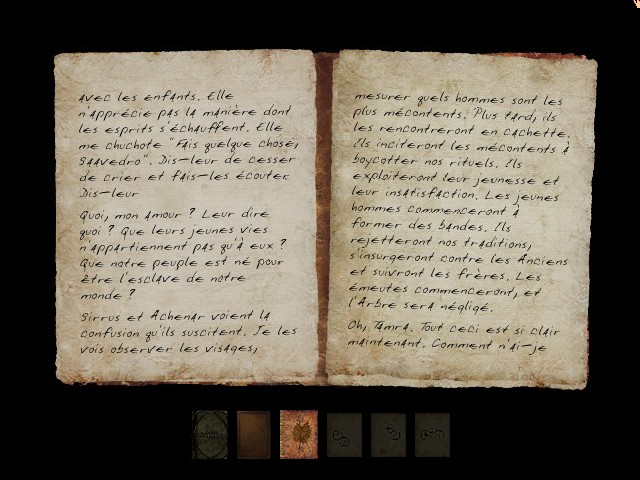 avec les enfants. Elle
n'apprécie pas la manière dont
les esprits s'échauffent. Elle
me chuchote "Fais quelque chose,
Saavedro". Dis-leur de cesser
de crier et fais-les écouter.
Dis-leur
Quoi, mon amour ? Leur dire
quoi ? Que leurs jeunes vies
n'appartiennent pas qu'à eux ?
Que notre peuple est né pour
être l'esclave de notre
monde ?
Sirrus et Achenar voient la
confusion qu'ils suscitent. Je les
vois observer les visages,
mesurer quels hommes sont les
plus mécontents. Plus tard, ils
les rencontreront en cachette.
Ils inciteront les mécontents à
boycotter nos rituels. Ils
exploiteront leur jeunesse et
leur insatisfaction. Les jeunes
hommes commenceront à
former des bandes. Ils
rejetteront nos traditions,
s'insurgeront contre les Anciens
et suivront les frères. Les
émeutes commenceront, et
l'Arbre sera négligé.
Oh, Tamra. Tout ceci est si clair
maintenant. Comment n'ai-je